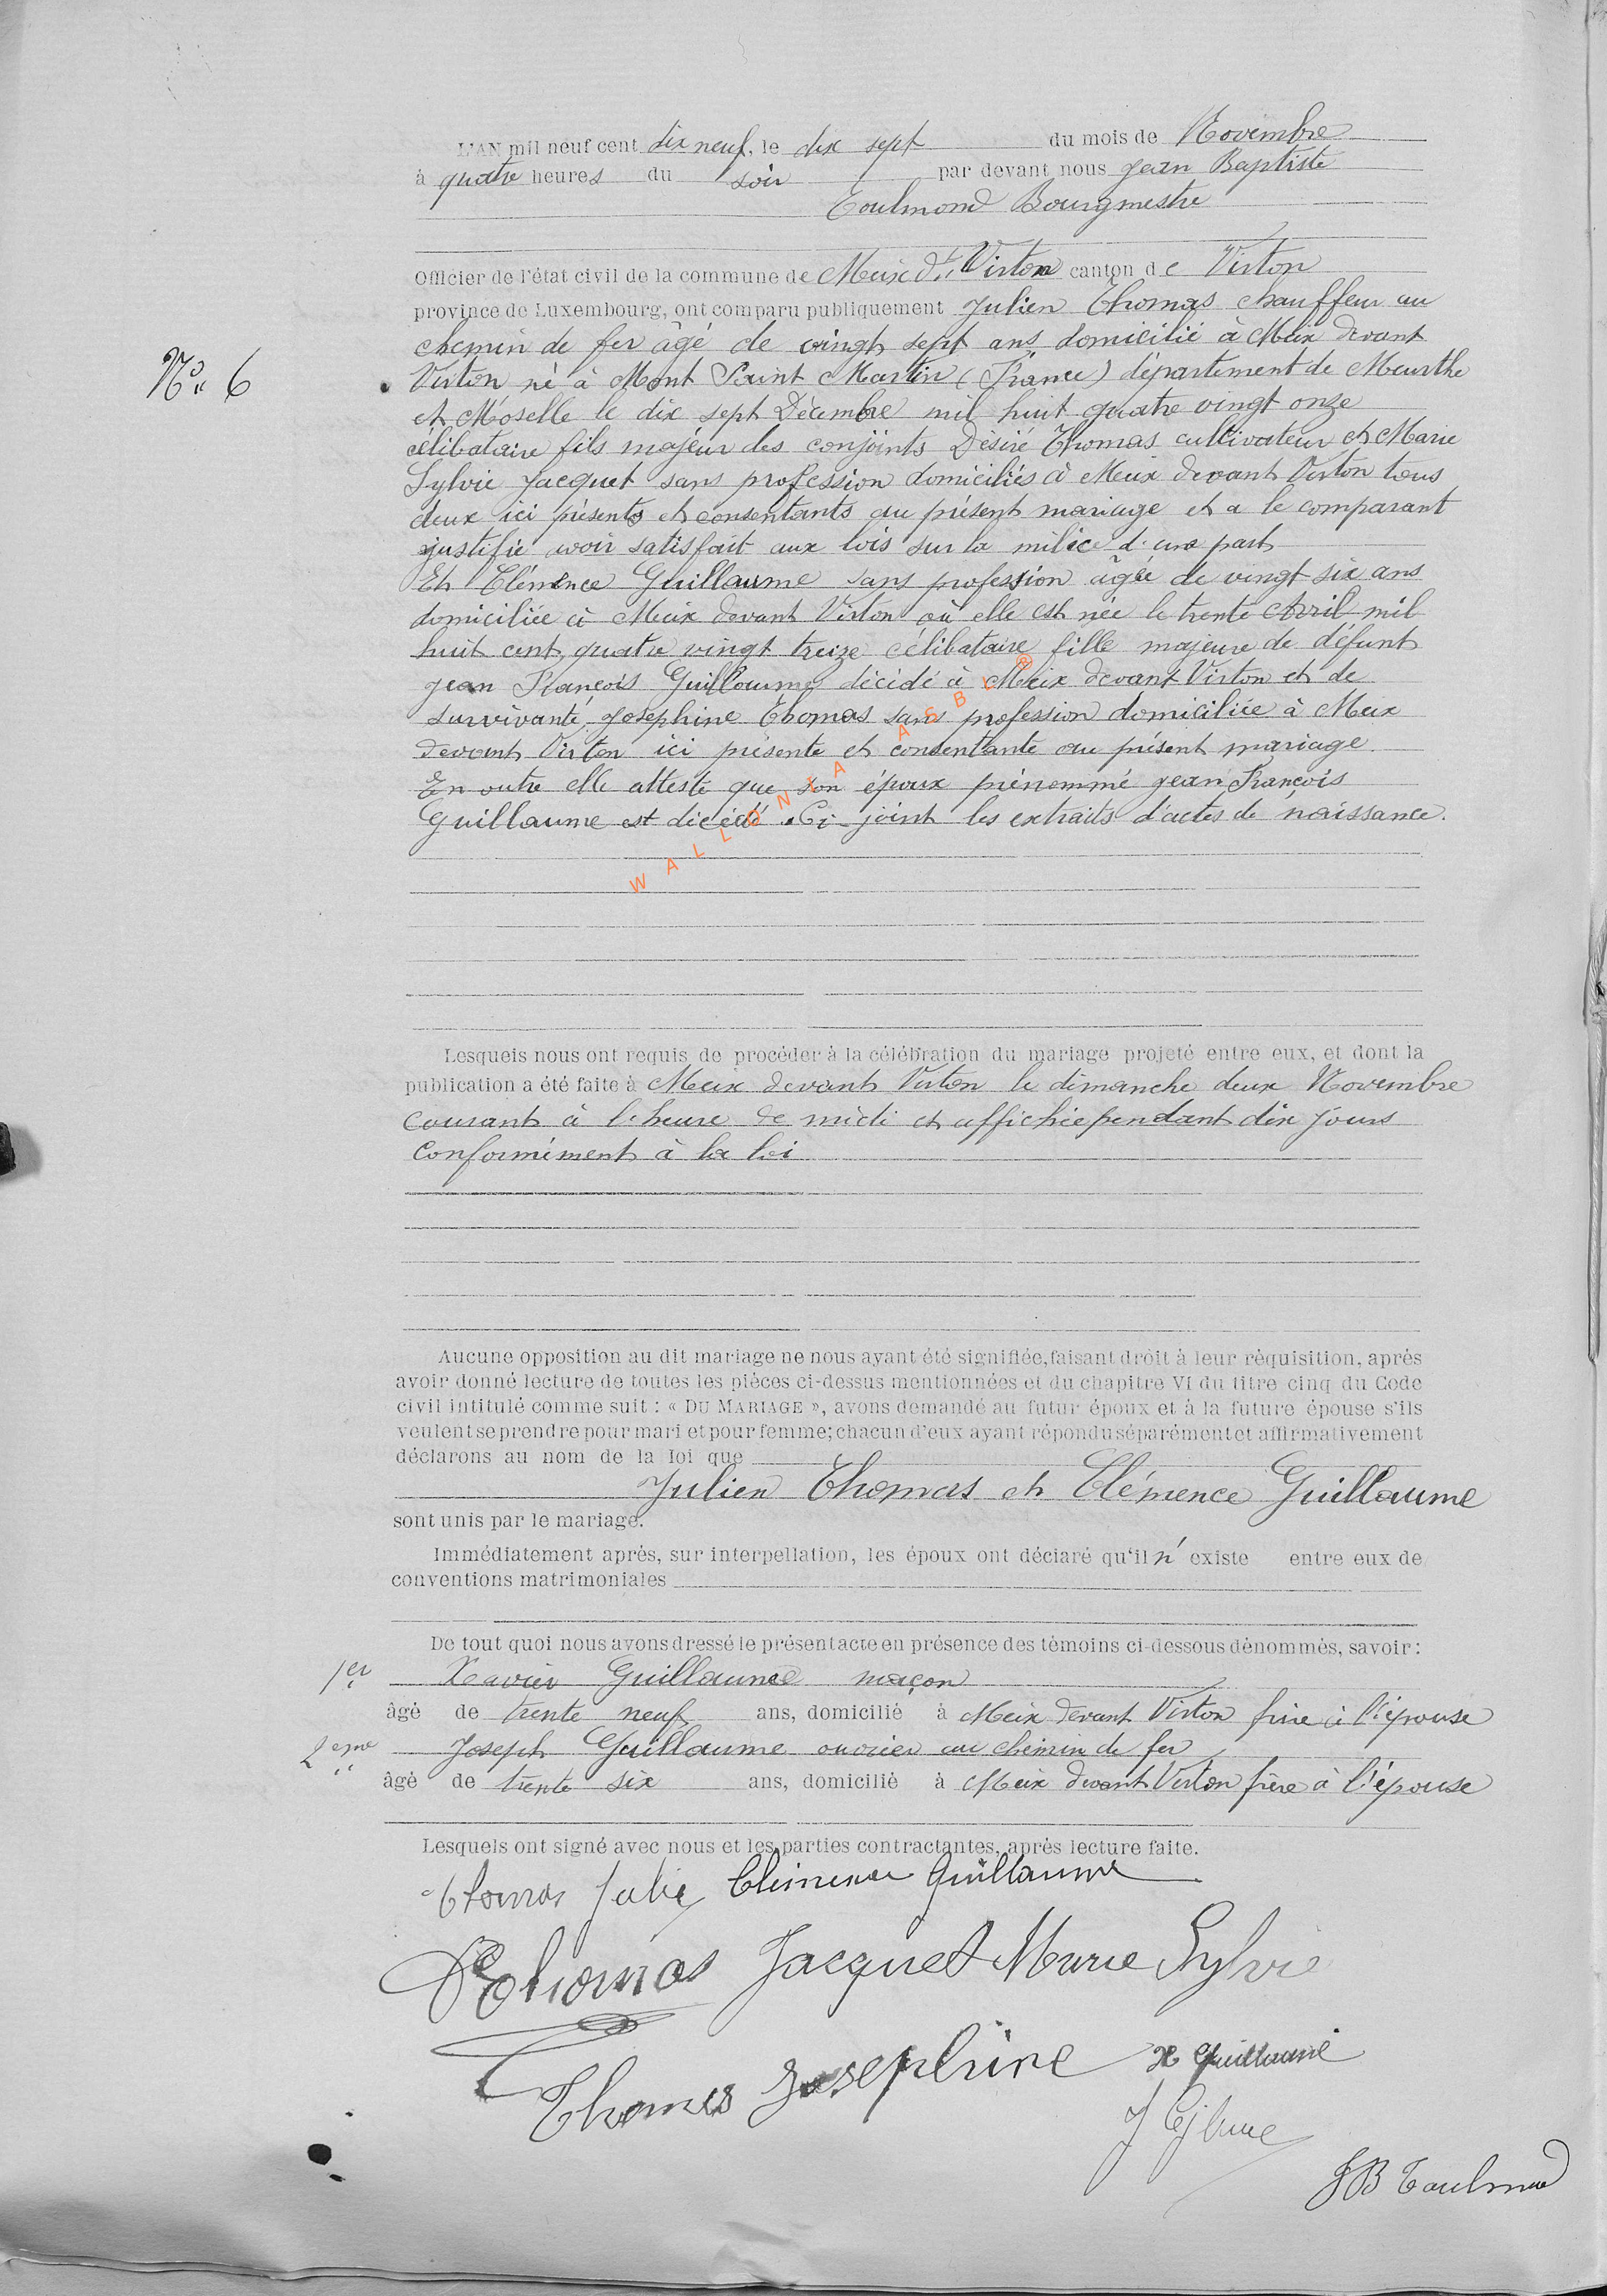 L'AN mil neuf cent dix neuf, le dix sept du mois de Novembre
à quatre heures du soir par devant nous Jean Baptiste
Toulmond Bourgmestre
Officier de l'état civil de la commune de Meix dt Virton canton de Virton
province de Luxembourg, ont comparu publiquement Julien Thomas chauffeur au
chemin de fer âgé de vingt sept ans domicilié à Meix devant
N° 6
Virton né à Mont Saint Martin (France) département de Meurthe
et Moselle le dix sept Décembre mil huit quatre vingt onze
célibataire fils majeur des conjoints Désiré Thomas cultivateur et Marie
Sylvie Jacquet sans profession domiciliés à Meix devant Virton tous
deux ici présents et consentants au présent mariage et a le comparant
justifié avoir satisfait aux lois sur la milice d'une part
Et Clémence Guillaume sans profession âgée de vingt six ans
domiciliée à Meix devant Virton où elle est née le trente Avril mil
huit cent quatre vingt treize célibataire fille majeure de défunt
Jean François Guillaume décédé à Meix devant Virton et de
survivante Joséphine Thomas sans profession domiciliée à Meix
devant Virton ici présente et consentante au présent mariage.
En outre elle atteste que son époux prénommé Jean François
Guillaume est décédé. Ci-joint les extraits d'actes de naissance.
WALLONIA ASBL ®
Lesquels nous ont requis de procéder à la célébration du mariage projeté entre eux, et dont la
publication a été faite à Meix devant Virton le dimanche deux Novembre
courant à l'heure de midi et affichée pendant dix jours
conformément à la loi
Aucune opposition au dit mariage ne nous ayant été signifiée, faisant droit à leur réquisition, après
avoir donné lecture de toutes les pièces ci-dessus mentionnées et du chapitre VI du titre cinq du Code
civil intitulé comme suit : « DU MARIAGE », avons demandé au futur époux et à la future épouse s'ils
veulent se prendre pour mari et pour femme; chacun d'eux ayant répondu séparément et affirmativement
déclarons au nom de la loi que
Julien Thomas et Clémence Guillaume
sont unis par le mariage.
Immédiatement après, sur interpellation, les époux ont déclaré qu'il n' existe entre eux de
conventions matrimoniales
De tout quoi nous avons dressé le présent acte en présence des témoins ci-dessous dénommés, savoir :
1er Xavier Guillaume maçon
âgé de trente neuf ans, domicilié à Meix devant Virton frère à l'épouse
2eme Joseph Guillaume ouvrier au chemin de fer
âgé de trente six ans, domicilié à Meix devant Virton frère à l'épouse
Lesquels ont signé avec nous et les parties contractantes, après lecture faite.
Thomas Julien Clémence Guillaume
D Thomas Jacquet Marie Sylvie
Thomas Josephine X Guillaume
JB Toulmond